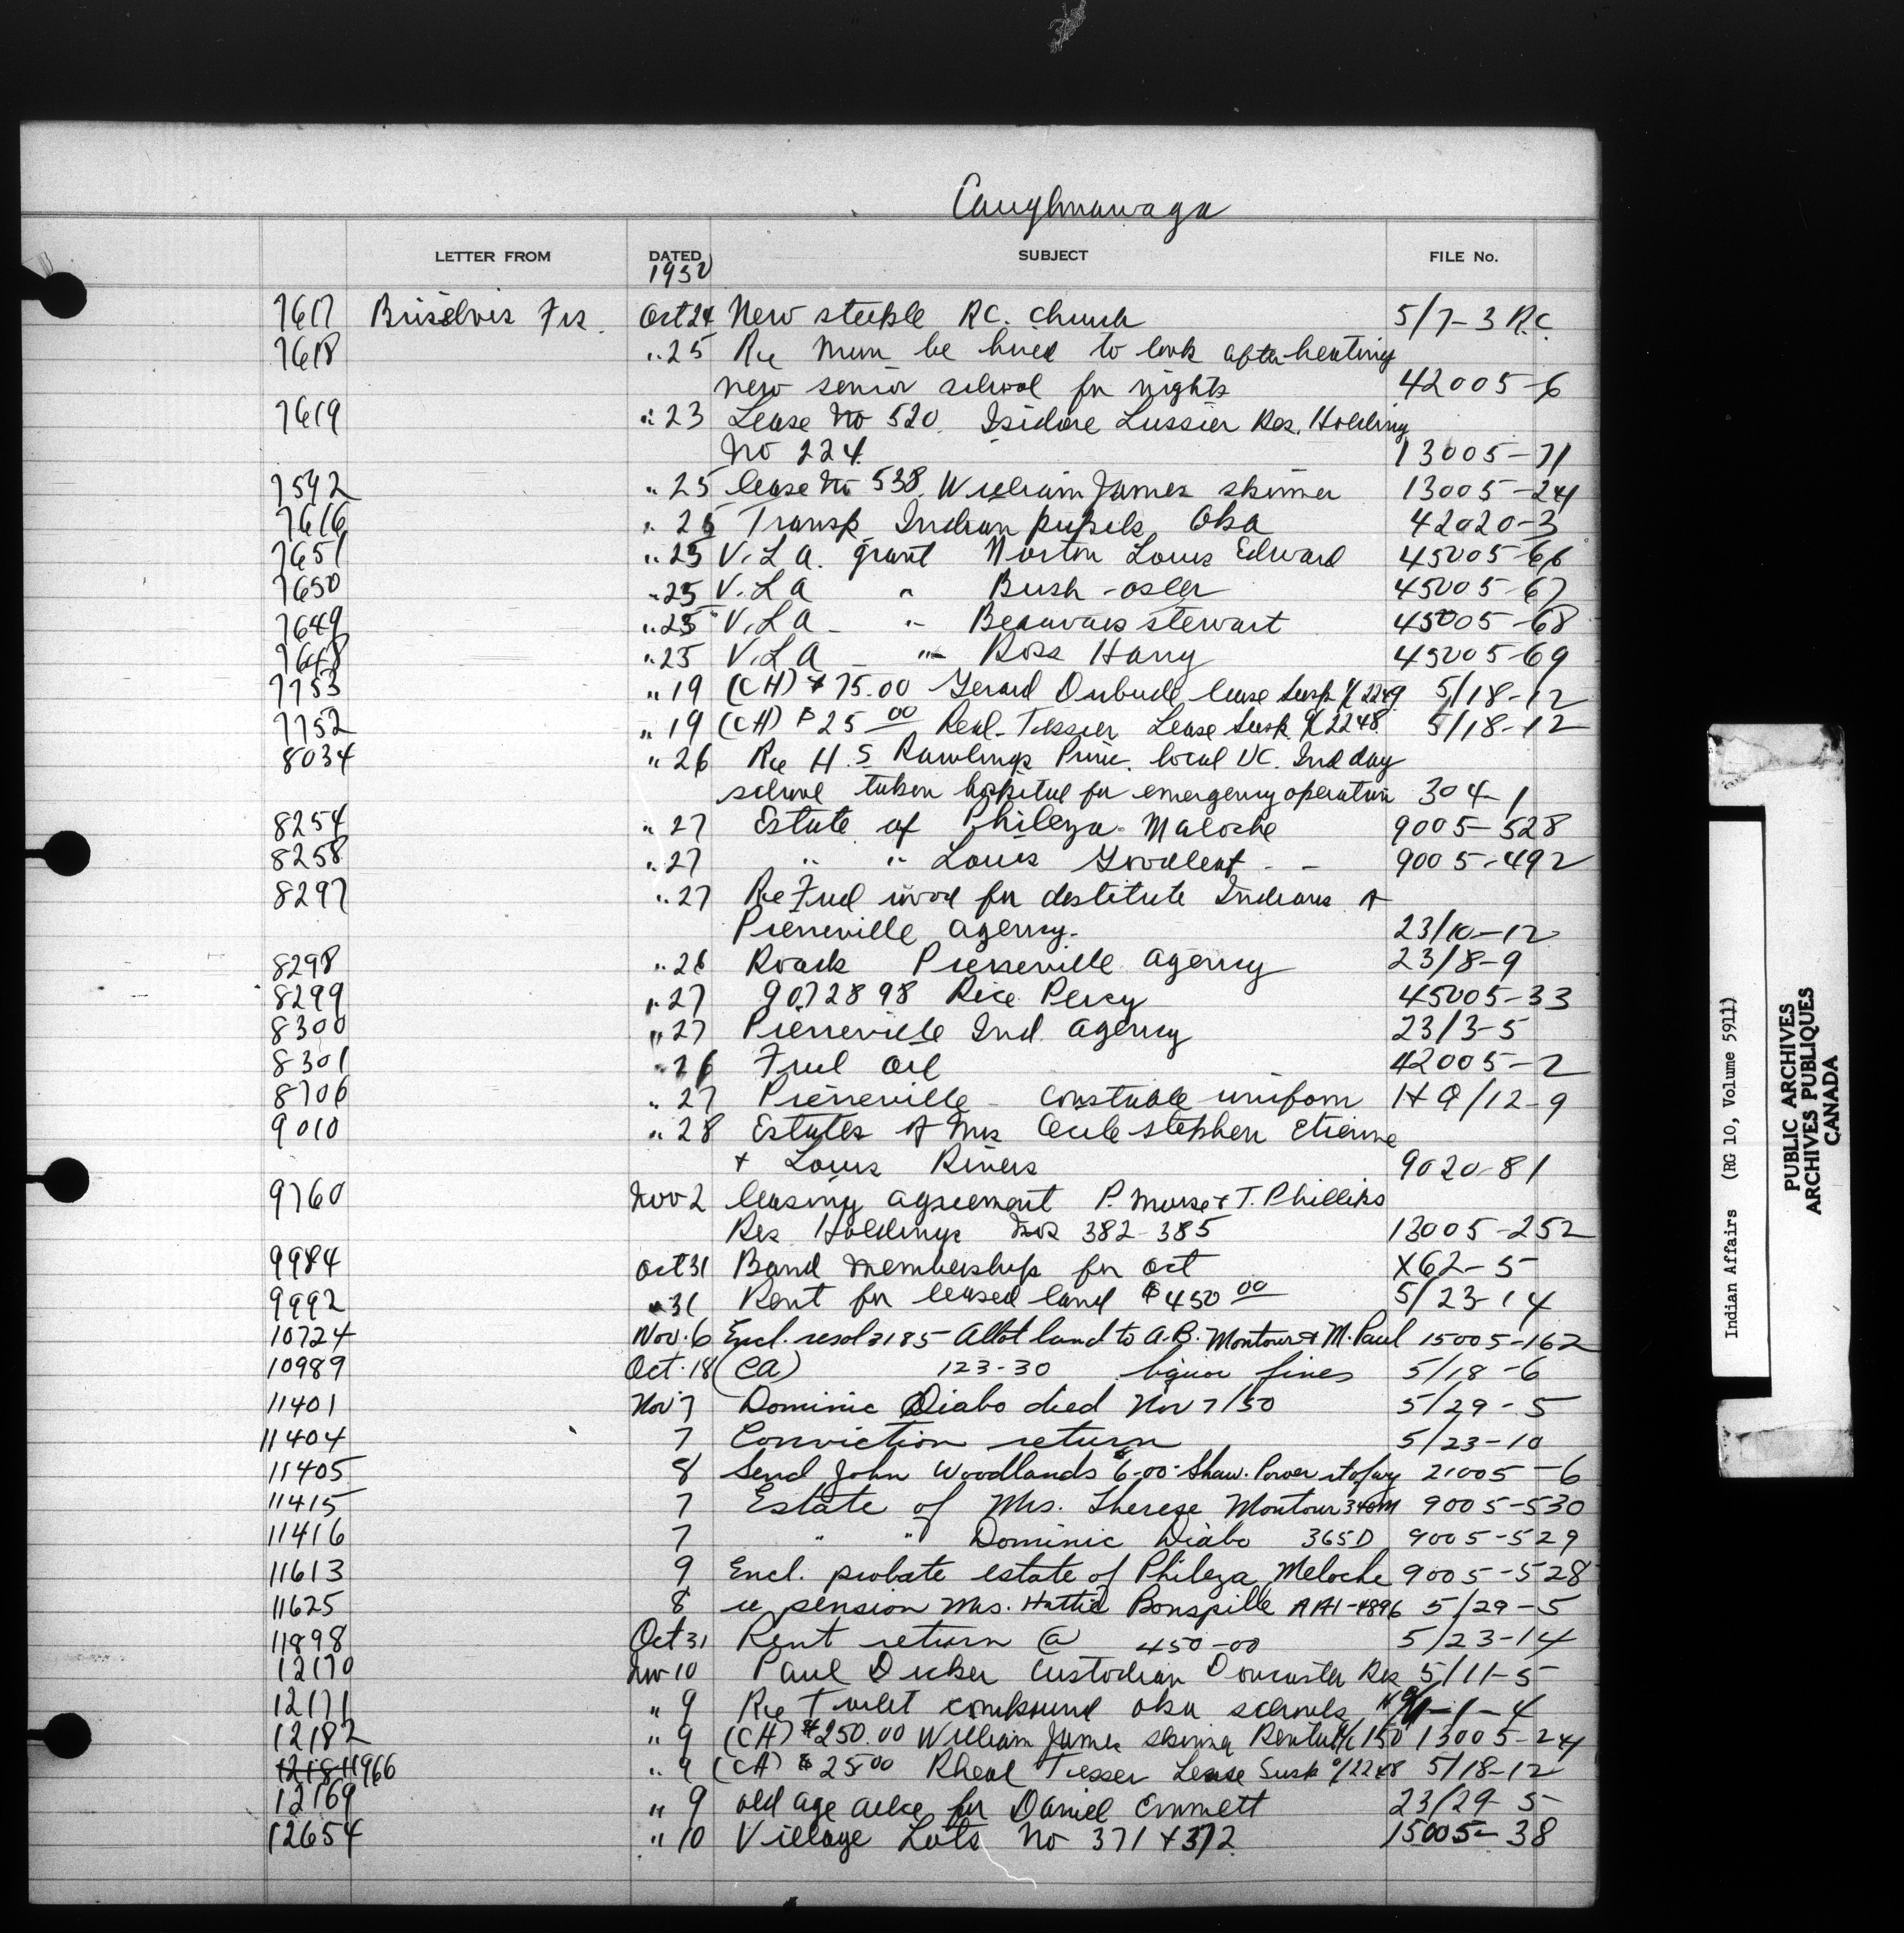 Caughnawaga
LETTER FROM DATED SUBJECT FILE No.
1950
7617 Brisebois Frs. Oct 24 New steeple R.C. Church 5/7-3 R.C.
7618 " 25 Re Man be hired to look after heating
new senior school for nights 42005-6
7619 " 23 Lease No 520. Isidore Lussier Res. Holding
No 224 13005-71
7592 " 25 lease No 538. William James Skinner 13005-241
7616 " 25 Transp. Indian pupils Oka 42020-3
7651 " 25 V.L.A. grant Norton Louis Edward 45005-66
7650 " 25 V.L.A " Bush - Osler 45005-67
7649 " 25 V.L.A - " Beauvais Stewart 45005-68
7648 " 25 V.L.A - " Ross Harry 45005-69
7753 " 19 (CH) $75.00 Gerard Dubude lease Susp % 2249 5/18-12
7752 " 19 (CH) $25 00 Real - Tessier Lease Susp. % 2248 5/18-12
8034 " 26 Re H.S Rawlings Princ. local UC. Ind day
school taken hospital for emergency operation 304-1
8254 " 27 Estate of Phileza - Maloche 9005-528
8258 " 27 " " Louis Goodleaf - - 9005-492
8297 " 27 Re Fuel wood for destitute Indians of
Pierreville Agency. 23/10-12
8298 " 26 Roads Pierreville Agency 23/8-9
8299 " 27 9072898 Rice Percy 45005-33
8300 " 27 Pierreville Ind. Agency 23/3-5
8301 " 26 Fuel Oil 42005-2
8706 " 27 Pierreville - Constable uniform HQ/12-9
9010 " 28 Estates of Mrs Cecile Stephen Etienne
+ Louis Rivers 9020-81
9760 Nov 2 leasing agreement P. Morse + T. Phillips
Res Holdings Nos 382-385 13005-252
9984 Oct 31 Band membership for Oct X62-5
9992 " 31 Rent for leased land $450 00 5/23-14
10724 Nov. 6 Encl. resol 2185 Allot land to A.B. Montour & M. Paul 15005-162
10989 Oct. 18 (CA) 123-30 liquor fines 5/18-6
11401 Nov 7 Dominic Diabo died Nov 7/50 5/29-5
11404 7 Conviction return 5/23-10
11405 8 Send John Woodlands 6-00 - Shaw. Power rt of wy 21005-6
11415 7 Estate of Mrs. Therese Montour 340M 9005-530
11416 7 " " Dominic Diabo 365D 9005-529
11613 9 Encl. probate estate of Phileza Meloche 9005-528
11625 8 re pension Mrs. Hattie Bonspille AA1-4896 5/29-5
11898 Oct 31 Rent return @ 450-00 5/23-14
12170 Nov 10 Paul Dicker Custodian Doncaster Res 5/11-5
12171 " 9 Re Toilet compound Oka schools 1-1-4
12182 " 9 (CH) $250.00 William James Skinner Rental % 150 13005-241
12181 11966 " 9 (CA) $25 00 Rheal Tiesser Lease Susp % 2248 5/18-12
12169 " 9 old age allce for Daniel Emmett 23/29-5
12654 " 10 Village Lots No 371 + 372 15005-38
Indian Affairs (RG 10, Volume 5911)
PUBLIC ARCHIVES
ARCHIVES PUBLIQUES
CANADA